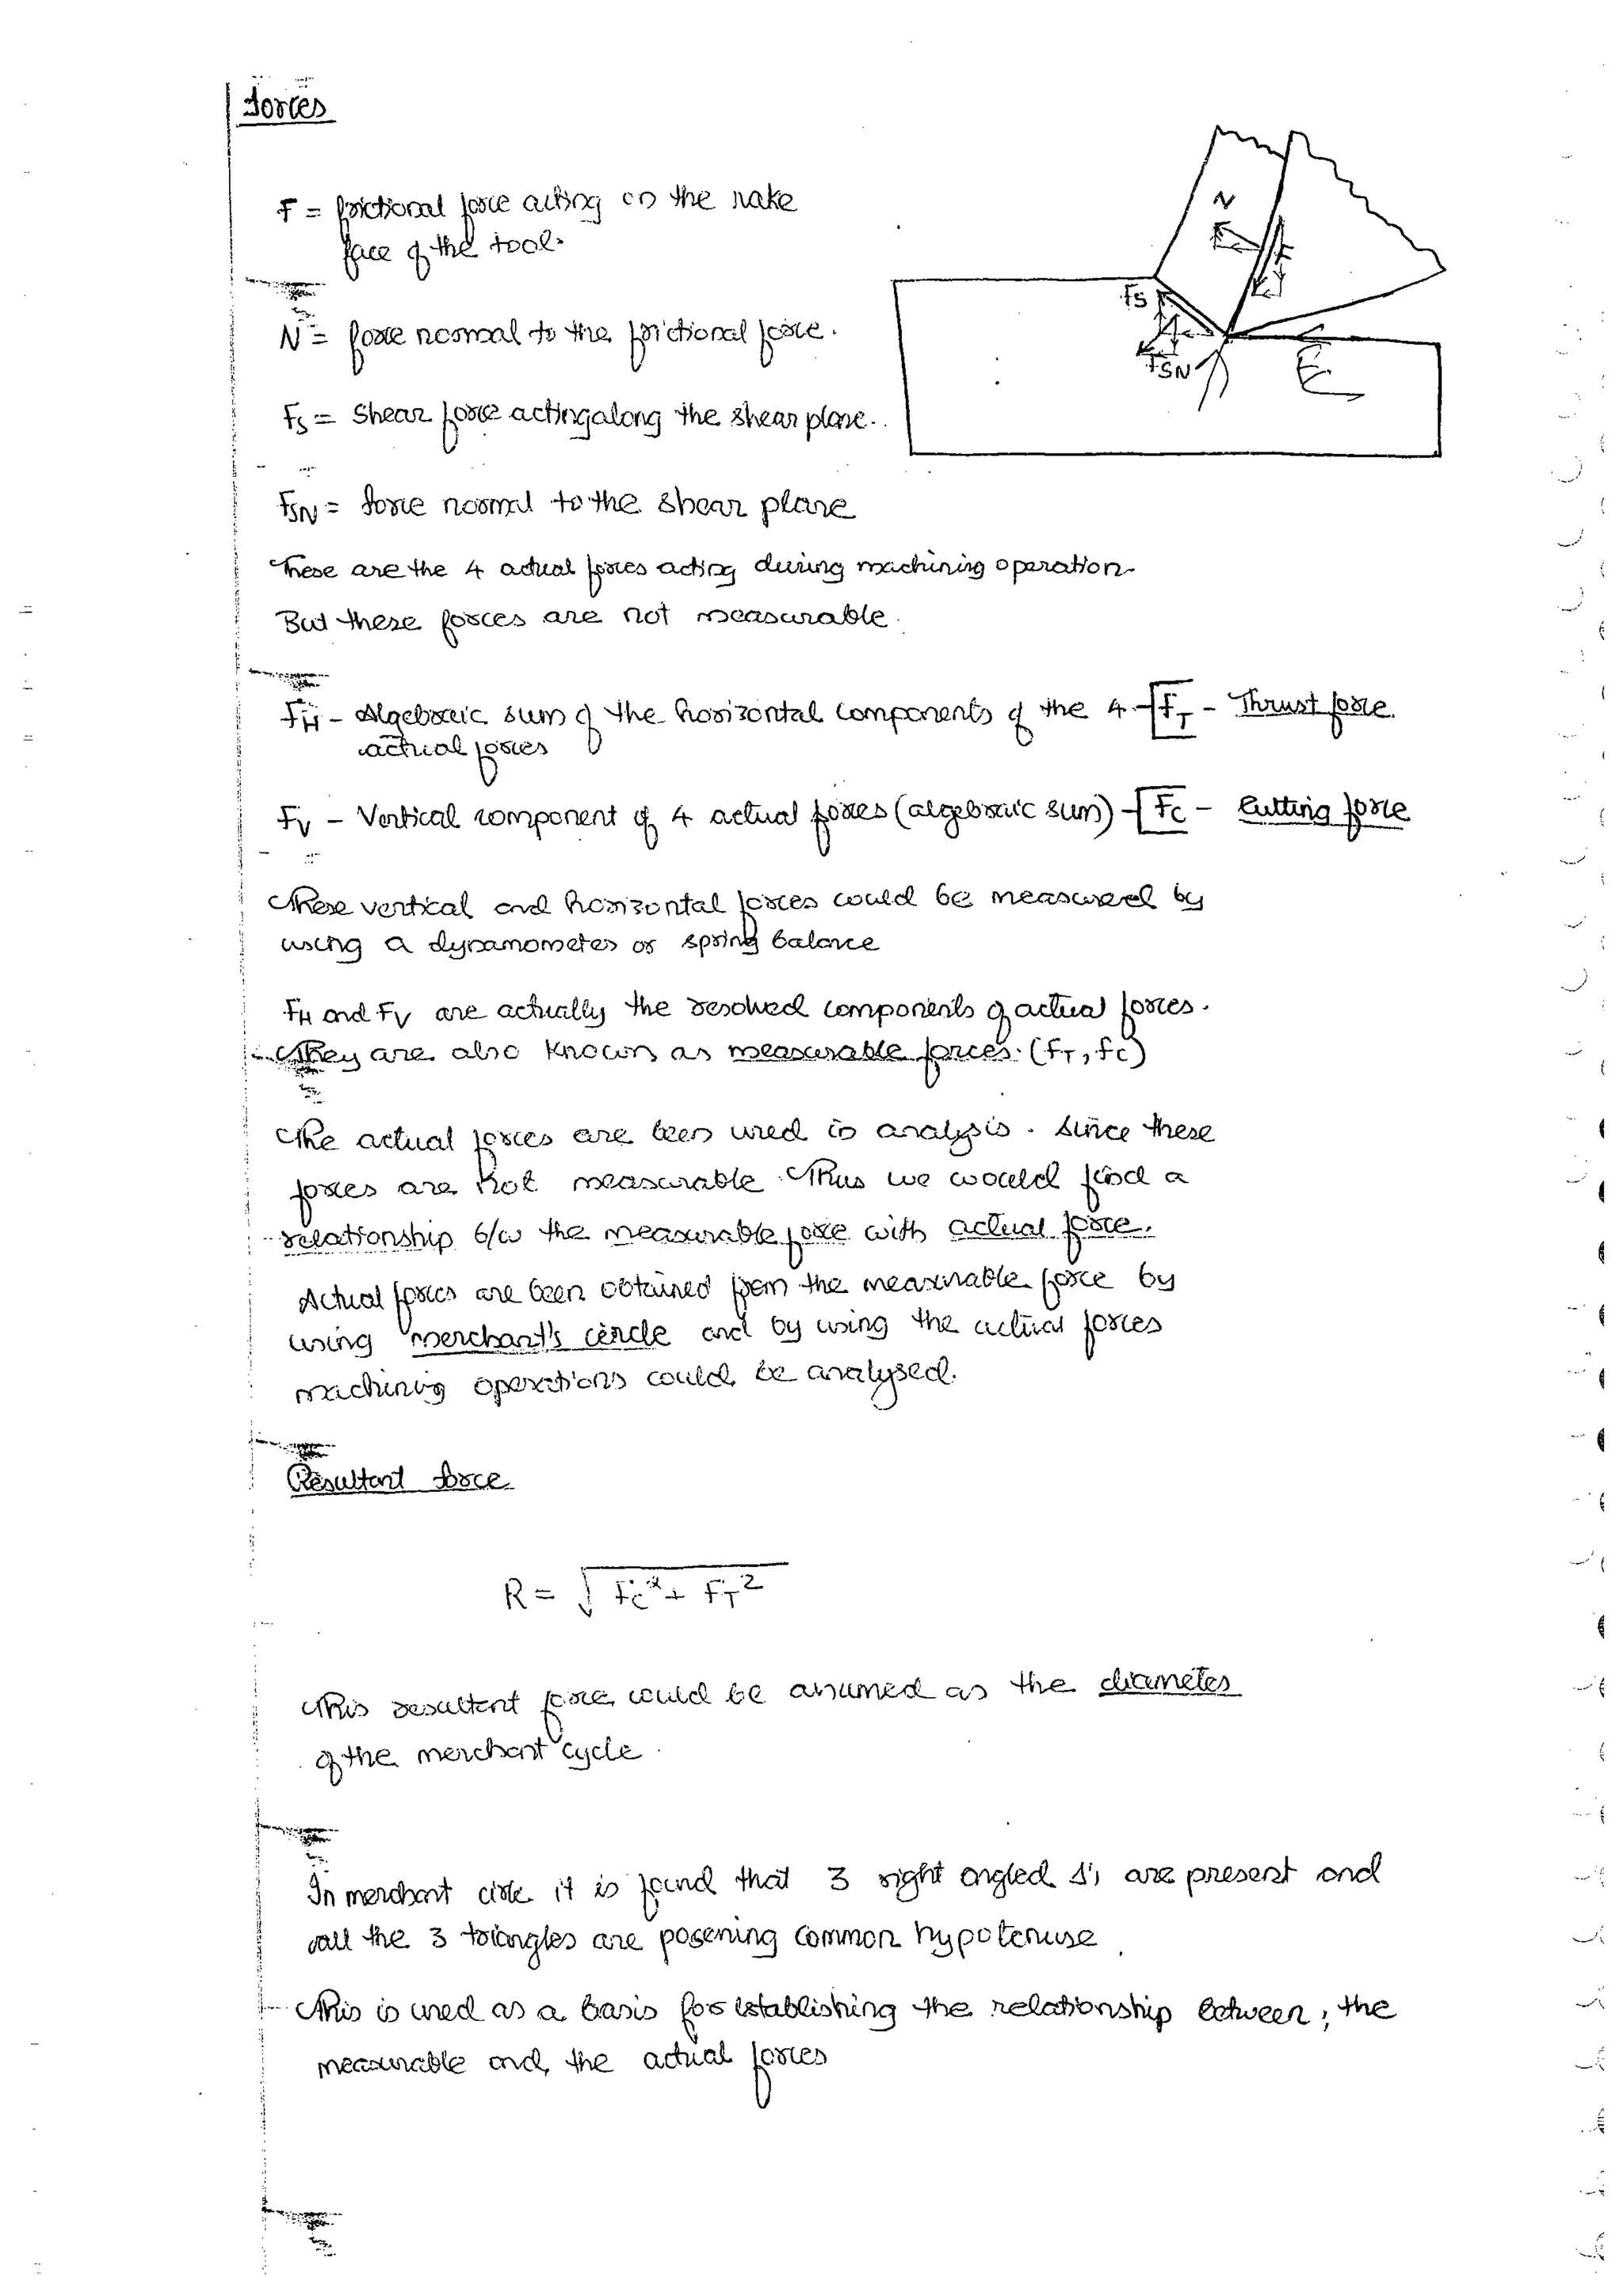 Forces
F = frictional force acting on the rake
face of the tool.
N = force normal to the frictional force.
Fs = Shear force acting along the shear plane.
FSN = force normal to the shear plane
These are the 4 actual forces acting during machining operation.
But these forces are not measurable.
FH - Algebraic sum of the horizontal components of the 4 - FT - Thrust force.
actual forces
FV - Vertical component of 4 actual forces (algebraic sum) - Fc - Cutting force
These vertical and horizontal forces could be measured by
using a dynamometer or spring balance
FH and FV are actually the resolved components of actual forces.
They are also known as measurable forces. (FT, Fc)
The actual forces are been used in analysis. Since these
forces are not measurable. Thus we would find a
relationship b/w the measurable force with actual force.
Actual forces are been obtained from the measurable force by
using merchant's circle and by using the actual forces
machining operations could be analysed.
Resultant force
R = √Fc² + FT²
This resultant force could be assumed as the diameter
of the merchant cycle.
In merchant circle it is found that 3 right angled Δ's are present and
all the 3 triangles are posening common hypotenuse
This is used as a basis for establishing the relationship between, the
measurable and the actual forces
N
F
Fs
FSN